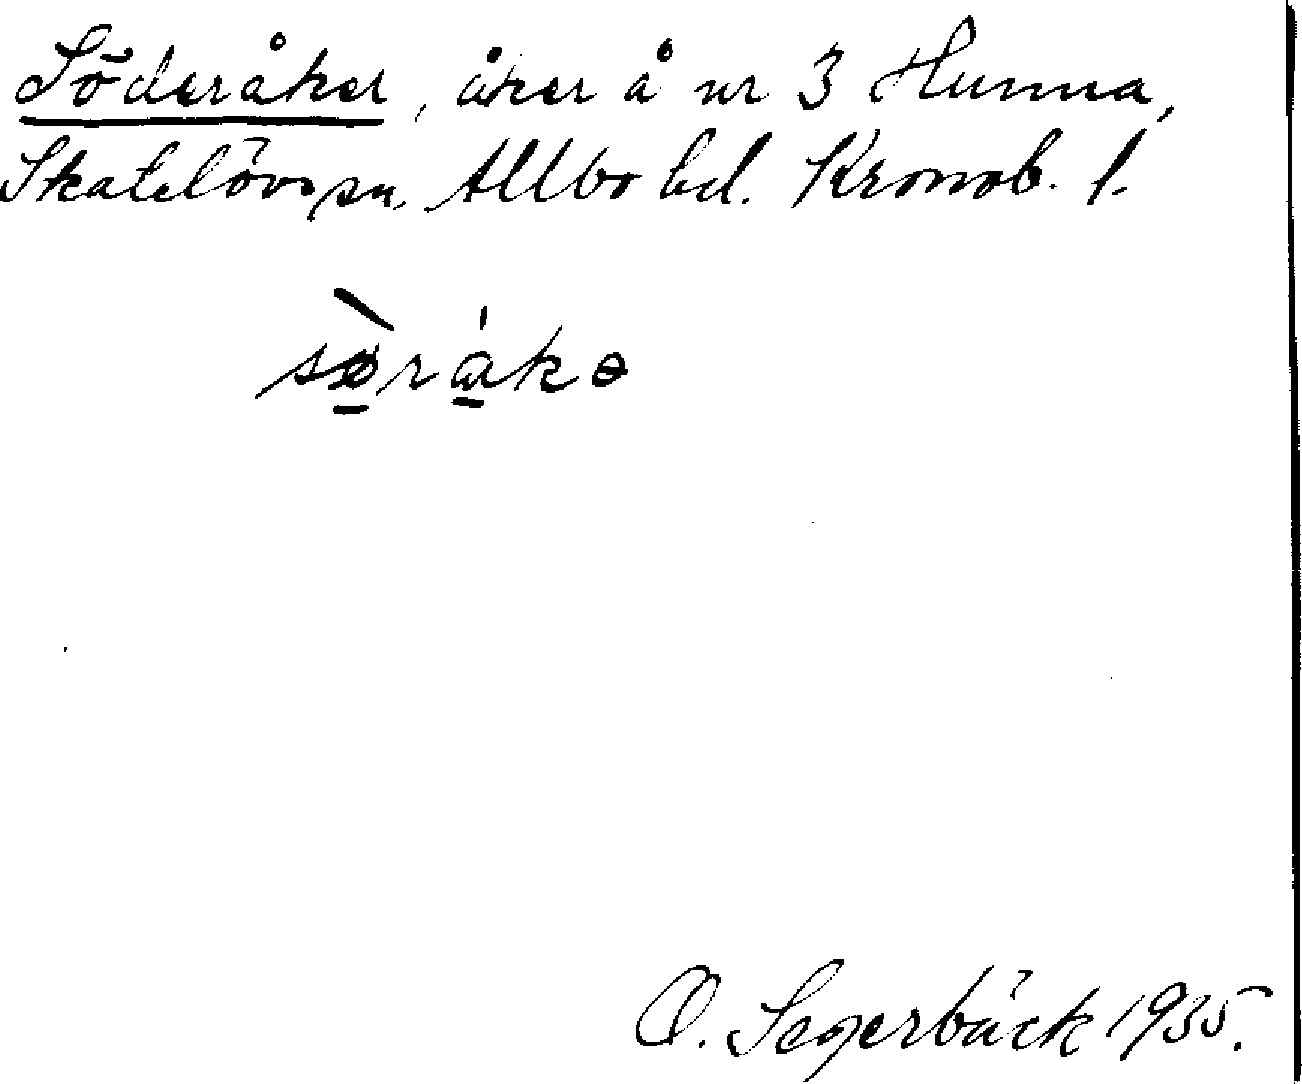 Söderåker, åker å nr 3 Hunna,
Skatelövs sn. Allbo hd. Kronob. l.
sø̀råkə
O. Segerbäck 1935.